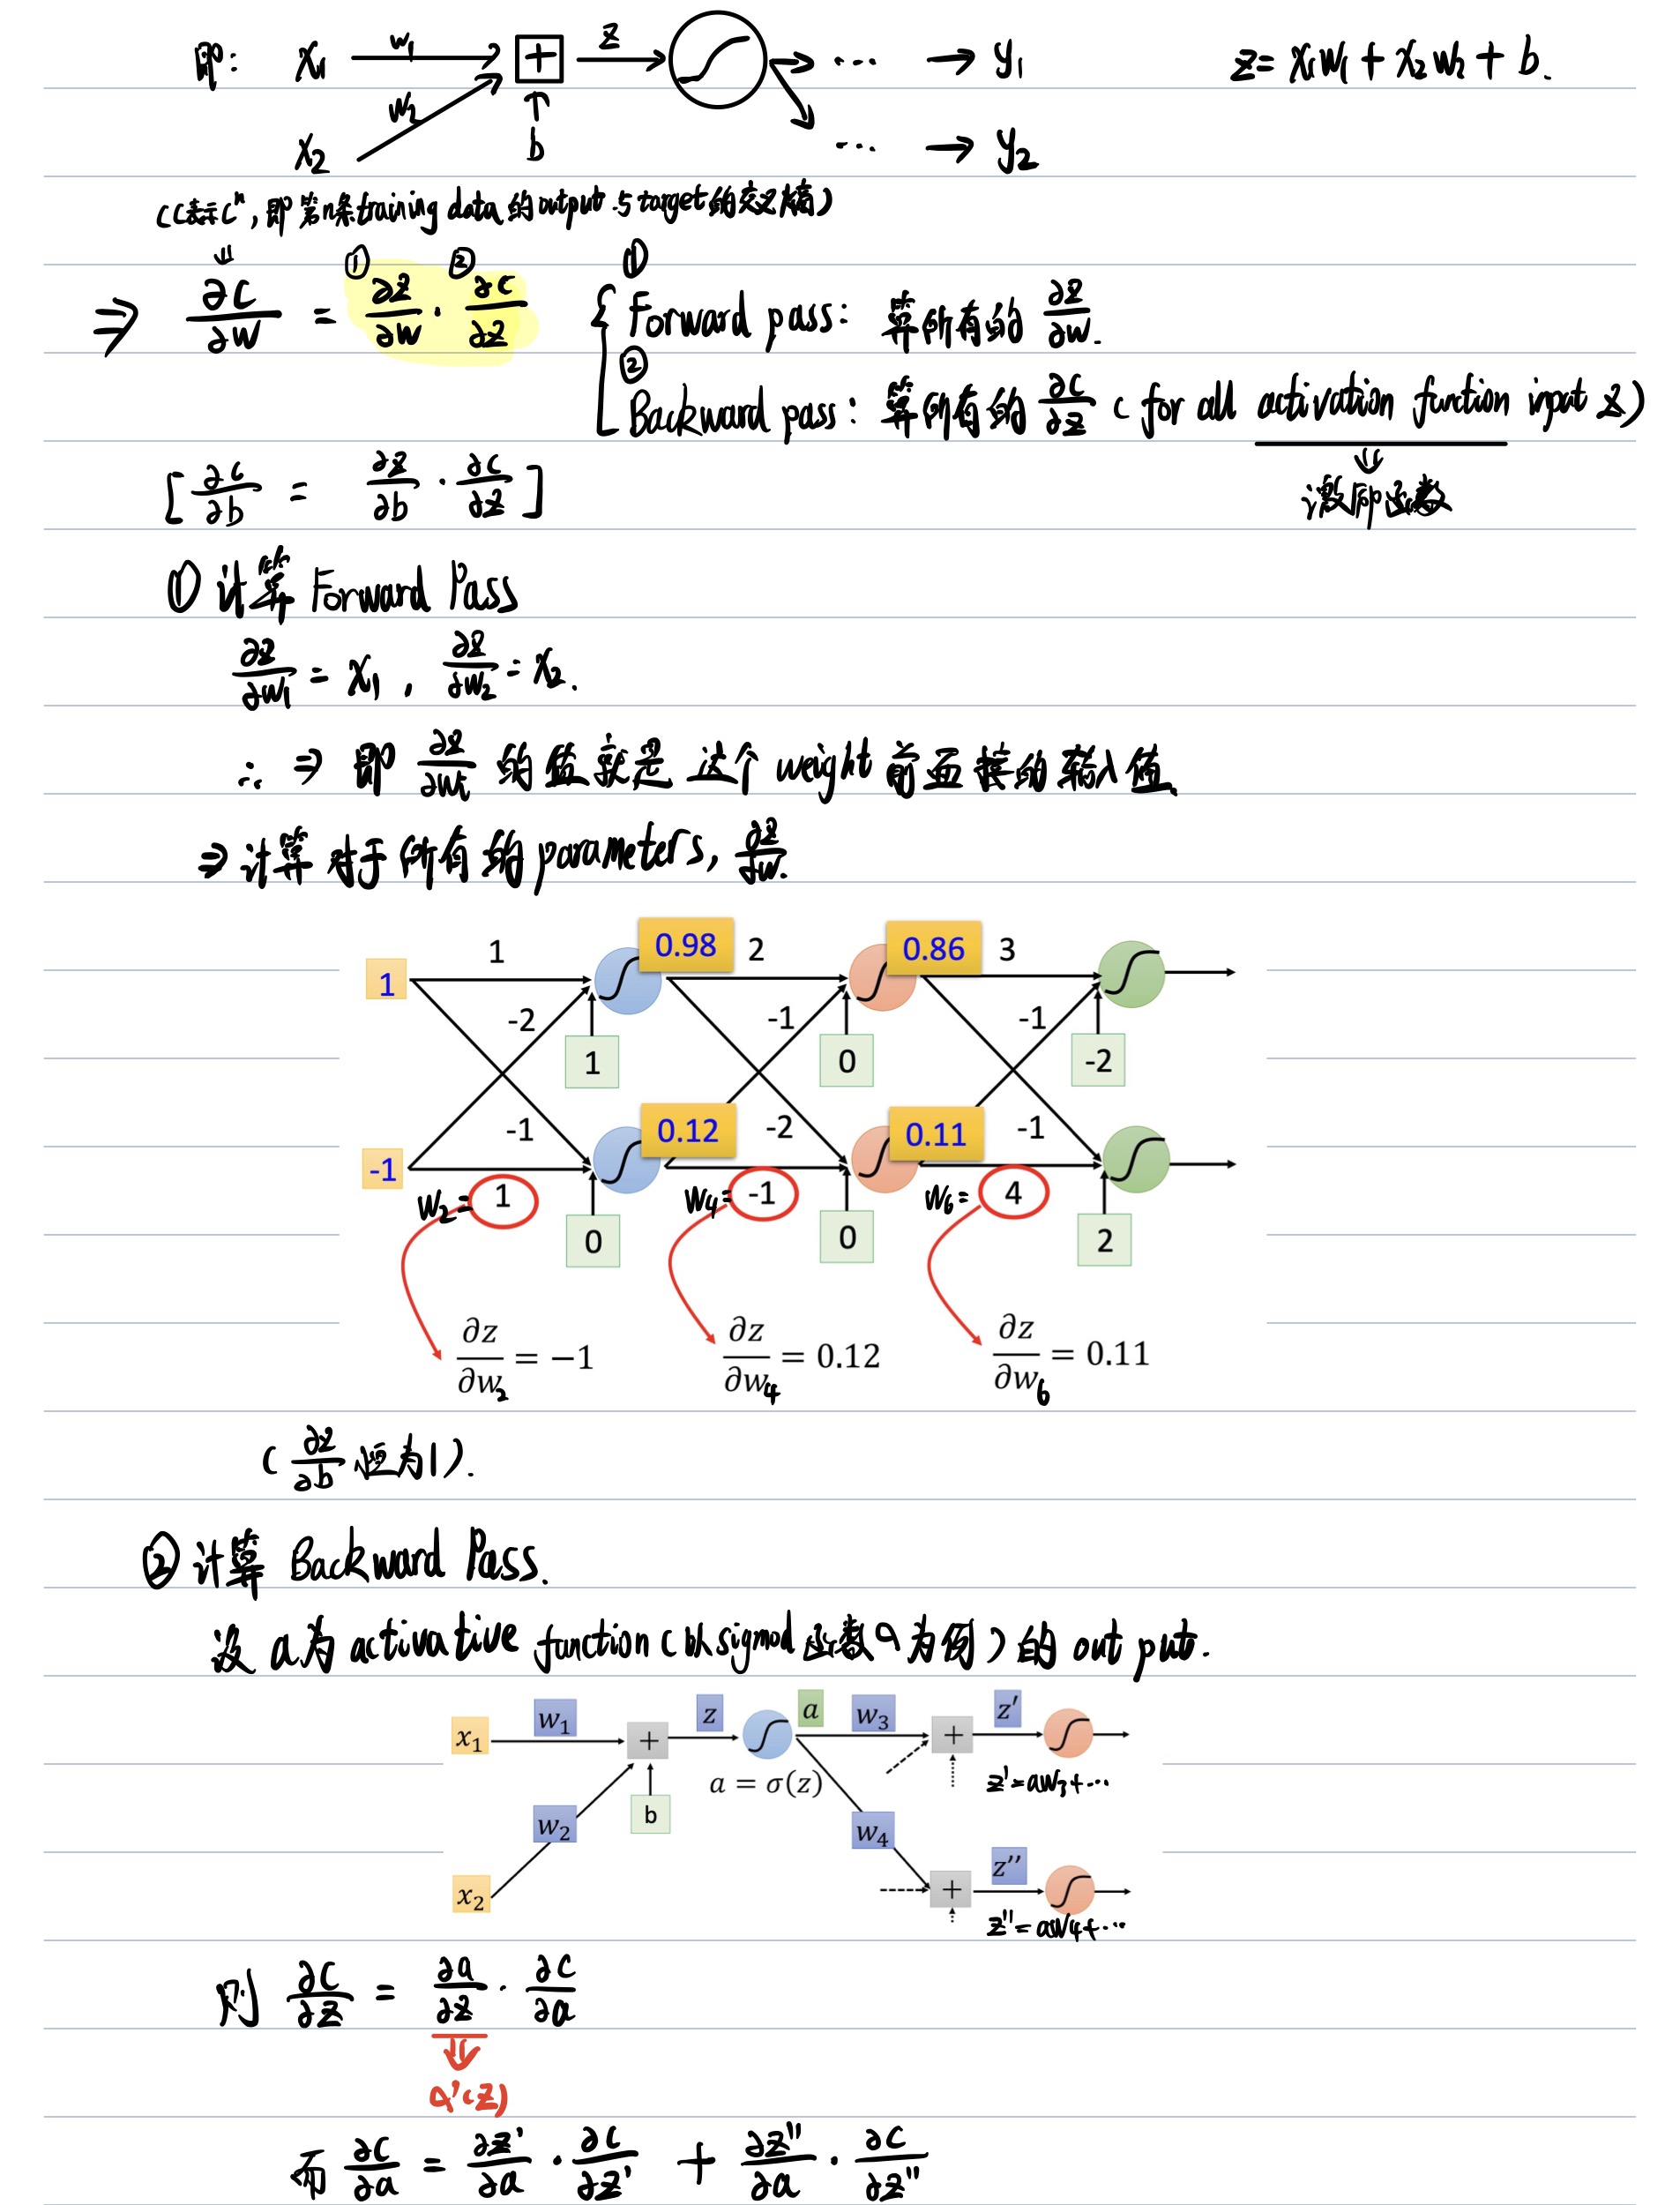 即: x₁ w₁ + z ... → y₁ z = x₁w₁ + x₂w₂ + b.
x₂ w₂ b ... → y₂
(C表示Cⁿ, 即第n条training data 的output与target的交叉熵)
⇒ ∂C/∂w = ① ∂z/∂w · ② ∂C/∂z { ① Forward pass: 算所有的 ∂z/∂w.
② Backward pass: 算所有的 ∂C/∂z ( for all activation function input z)
[∂C/∂b = ∂z/∂b · ∂C/∂z] ⇓ 激励函数
① 计算 Forward Pass
∂z/∂w₁ = x₁, ∂z/∂w₂ = x₂.
∴ ⇒ 即 ∂z/∂wᵢ 的值就是 这个 weight 前面接的输入值.
⇒ 计算对于所有的parameters, ∂z/∂w.
1 1 0.98 2 0.86 3
-2 -1 -1
1 0 -2
-1 -2 -1
-1 0.12 0.11
w₂= 1 w₄= -1 w₆= 4
0 0 2
∂z/∂w₂ = −1 ∂z/∂w₄ = 0.12 ∂z/∂w₆ = 0.11
(∂z/∂b 恒为1).
② 计算 Backward Pass.
设 a为 activative function (以sigmod函数σ为例) 的 output.
x₁ w₁ + z a w₃ + z′
a = σ(z) z' = aw₃+…
w₂ b w₄
x₂ + z′′
z'' = aw₄+…
则 ∂C/∂z = ∂a/∂z · ∂C/∂a
⇓
σ'(z)
而 ∂C/∂a = ∂z'/∂a · ∂C/∂z' + ∂z''/∂a · ∂C/∂z''